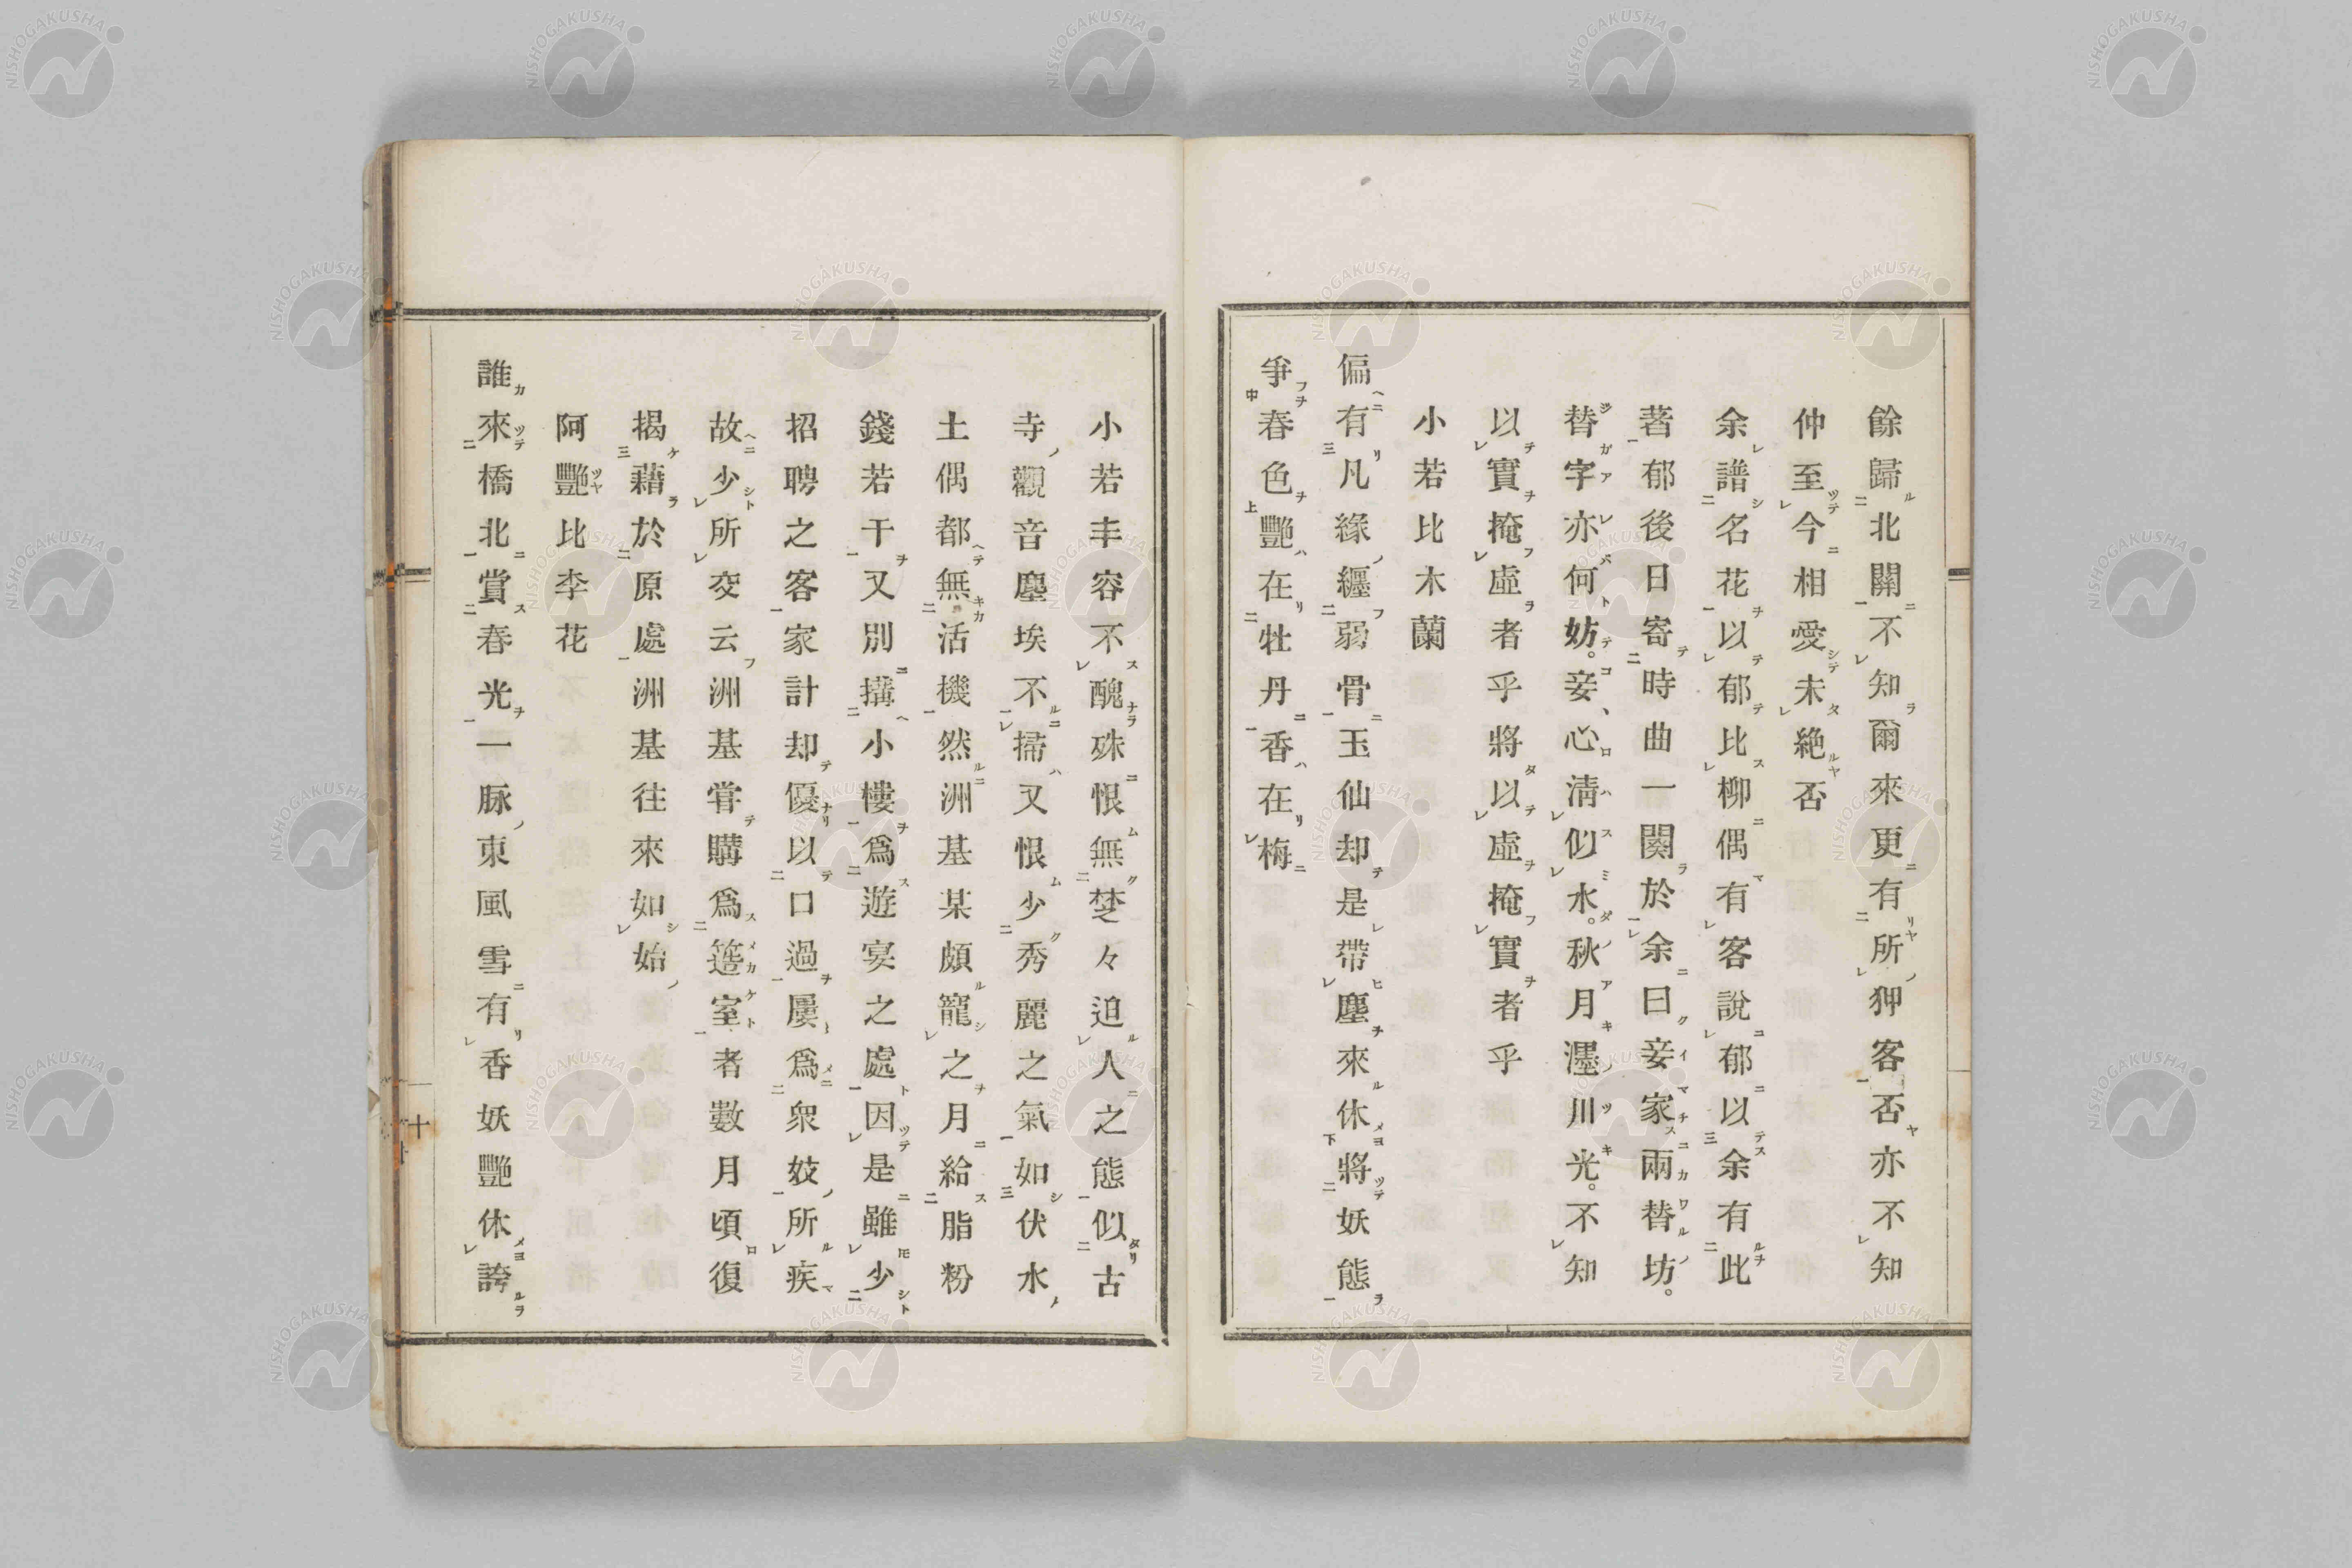 餘歸北關不知爾來更有所狎客否亦不知
仲至今相愛未絕否
余譜名花以郁比柳偶有客說郁以余有此
著郁後日寄時曲一闋於余曰妾家兩替坊。
替字亦何妨。妾、心淸似水。秋月濹川光。不知
以實掩虛者乎將以虛掩實者乎
小若比木蘭
偏有凡緣纒弱骨玉仙却是帶塵來休將妖態
爭春色艷在牡丹香在梅
小若丰容不醜殊恨無楚々迫人之態似古
寺觀音塵埃不掃又恨少秀麗之氣如伏水
土偶都無活機然洲基某頗寵之月給脂粉
錢若干又別搆小樓爲遊宴之處因是雖少
招聘之客家計却優以口過屢爲衆妓所疾
故少所交云洲基甞購爲簉室者數月頃復
揭藉於原處洲基往來如始
阿艷比李花
誰來橋北賞春光一脉東風雪有香妖艷休誇
十